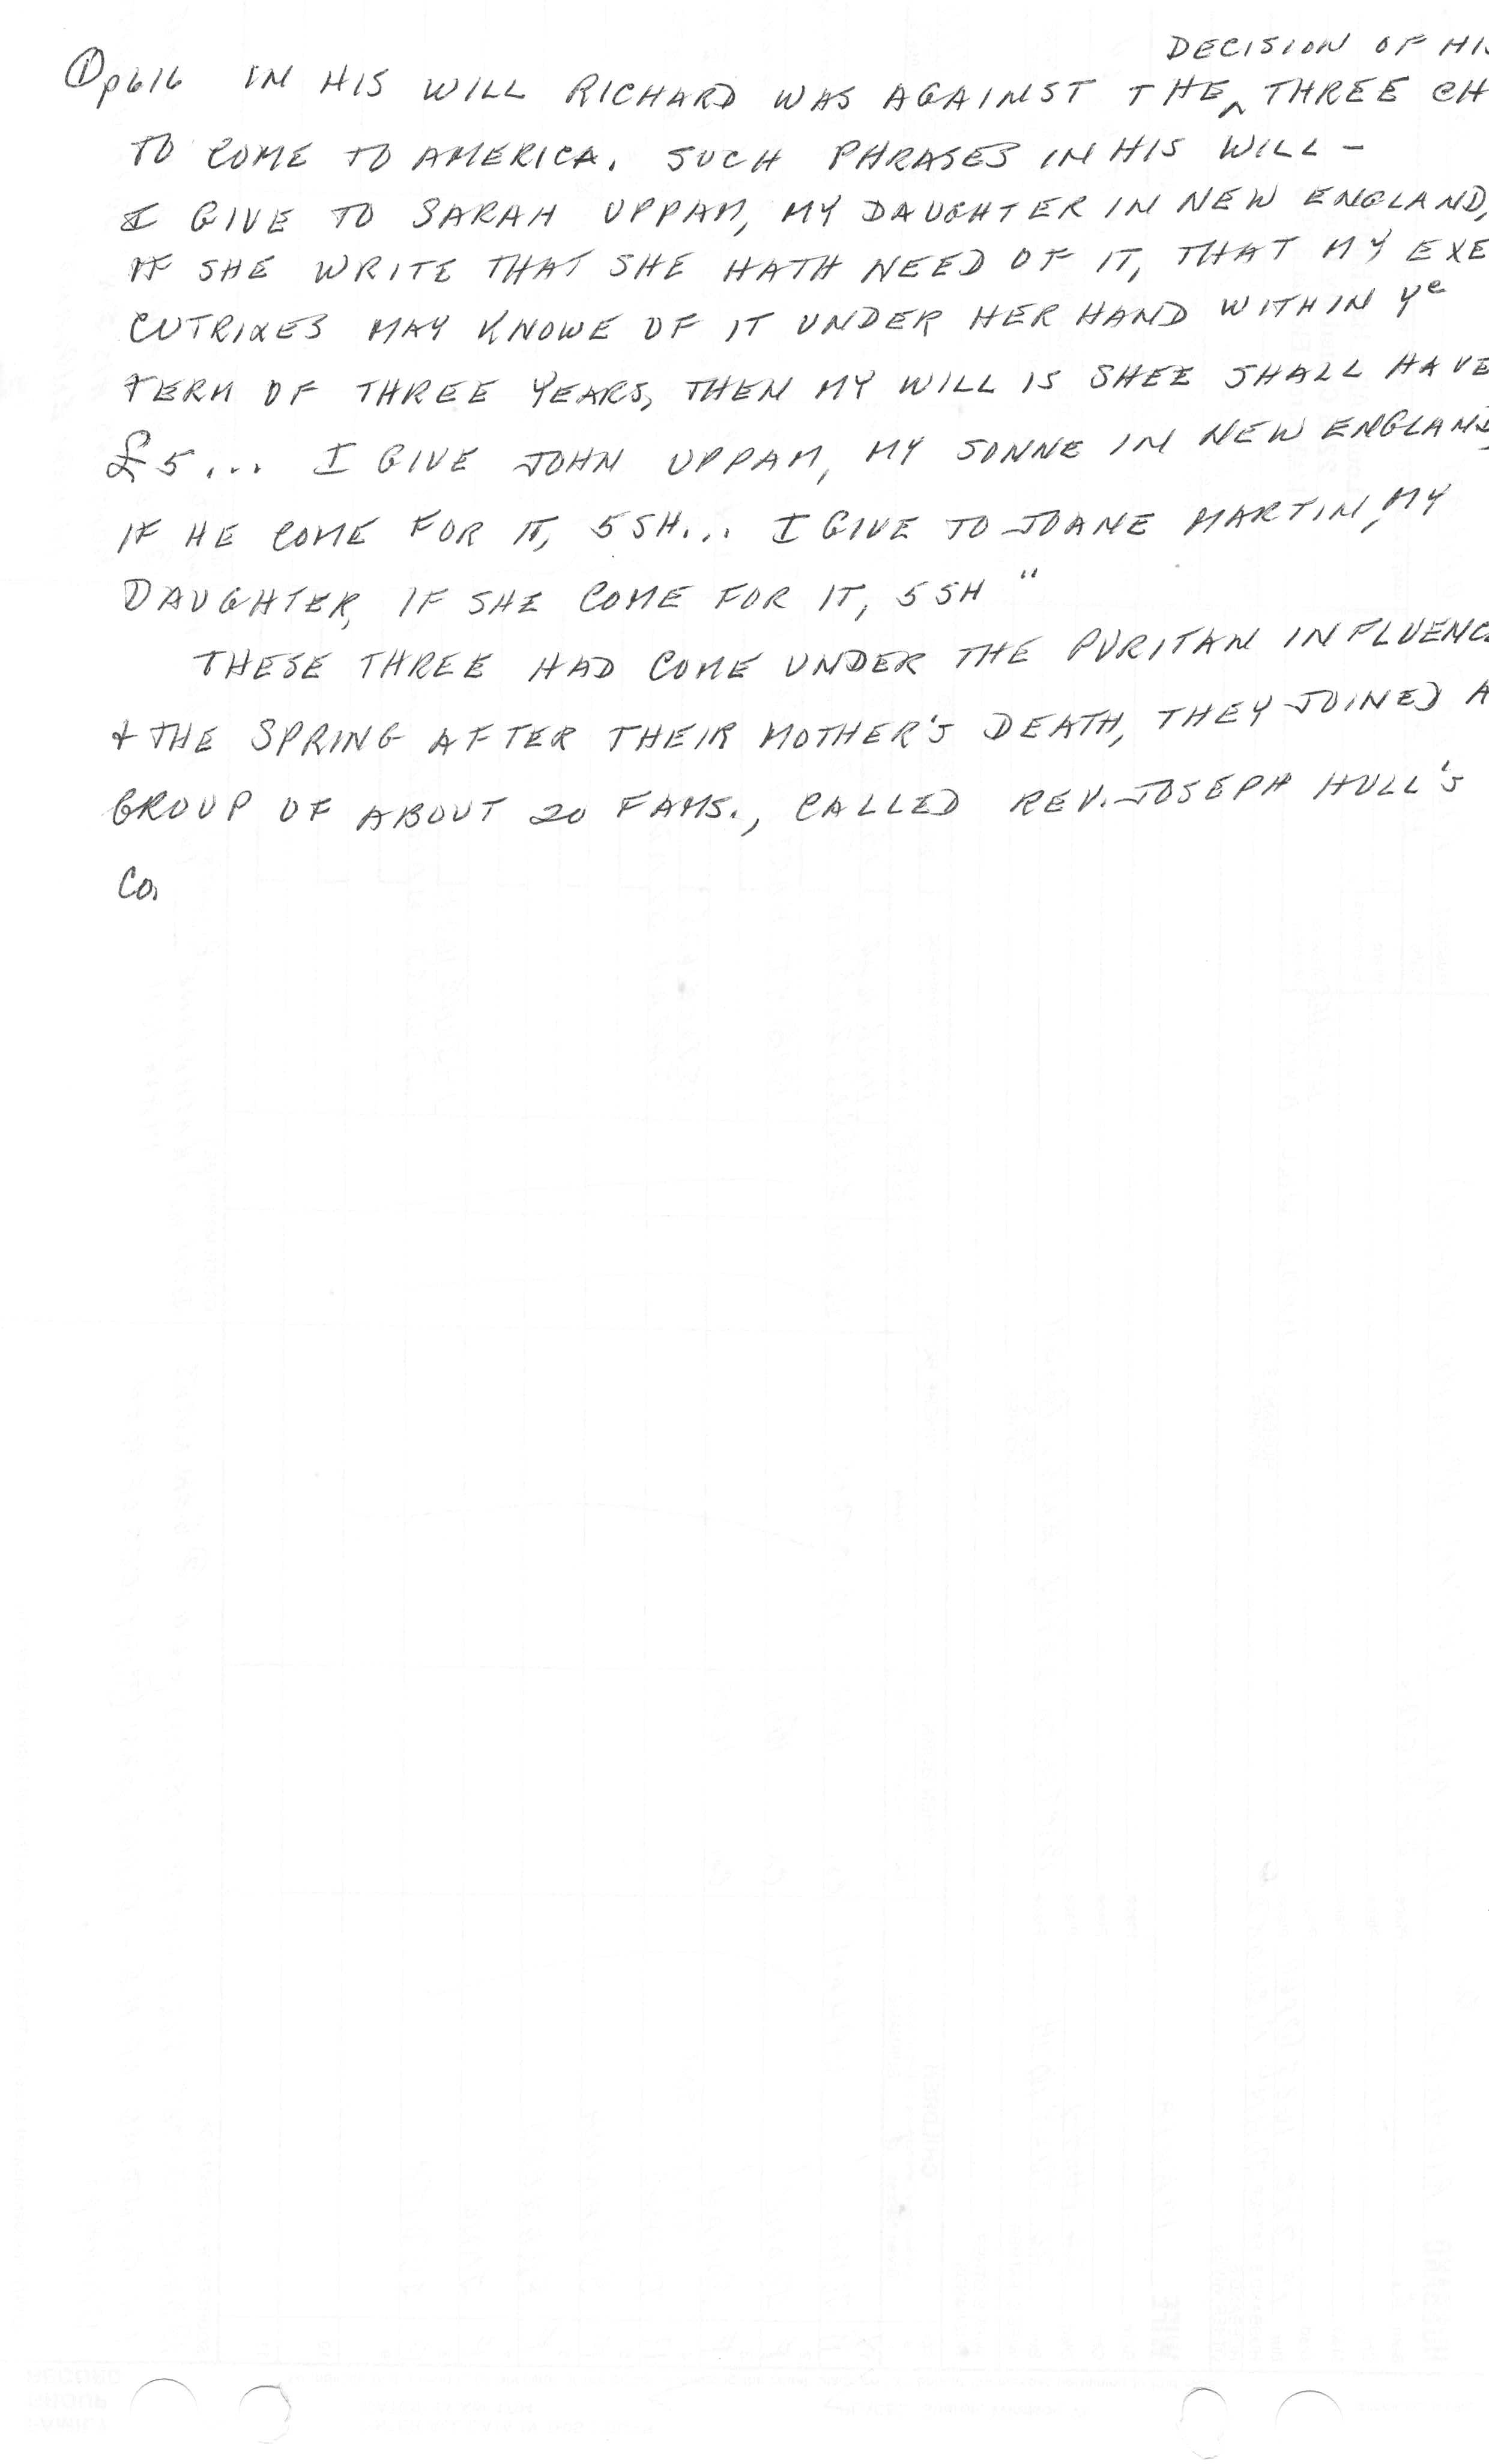 DECISION OF HIS
① p616 IN HIS WILL RICHARD WAS AGAINST THE ^ THREE CH
TO COME TO AMERICA. SUCH PHRASES IN HIS WILL -
I GIVE TO SARAH UPPAM, MY DAUGHTER IN NEW ENGLAND,
IF SHE WRITE THAT SHE HATH NEED OF IT, THAT MY EXE
CUTRIXES MAY KNOWE OF IT UNDER HER HAND WITHIN Ye
TERM OF THREE YEARS, THEN MY WILL IS SHEE SHALL HAVE
£5... I GIVE JOHN UPPAM, MY SONNE IN NEW ENGLAND,
IF HE COME FOR IT, 5SH... I GIVE TO JOANE MARTIN, MY
DAUGHTER, IF SHE COME FOR IT, 5SH "
THESE THREE HAD COME UNDER THE PURITAN INFLUENC
& THE SPRING AFTER THEIR MOTHER'S DEATH, THEY JOINED A
GROUP OF ABOUT 20 FAMS., CALLED REV. JOSEPH HULL'S
CO.